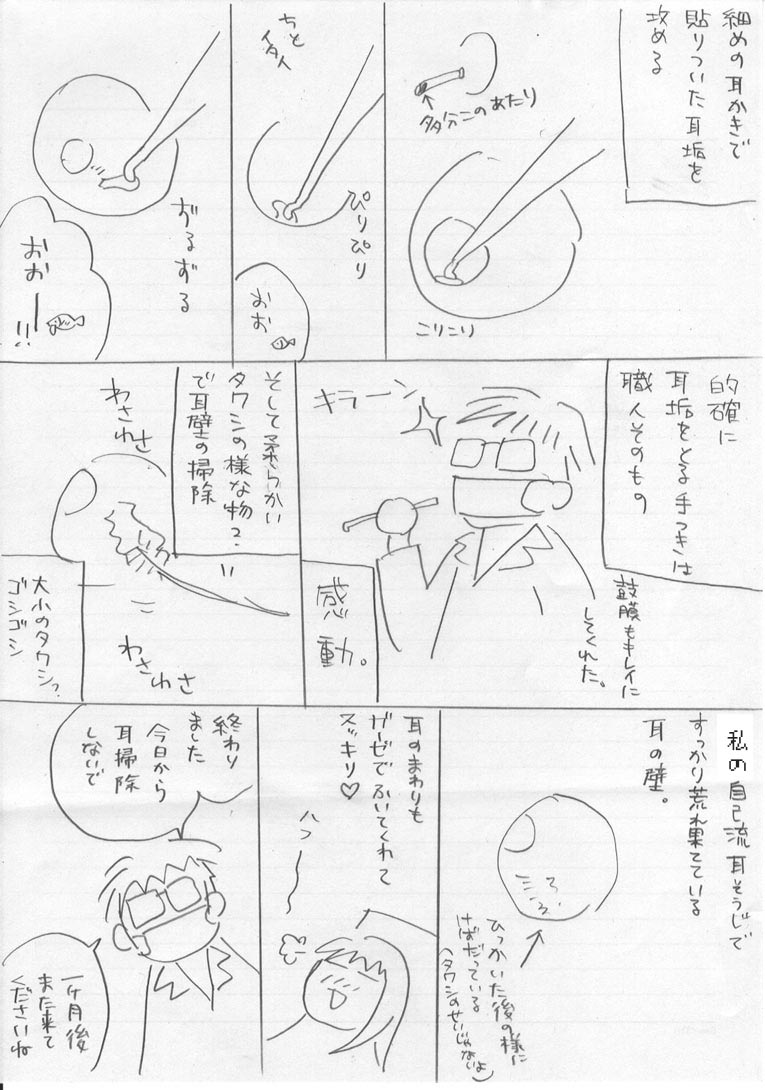 細めの耳かきで
貼りついた耳垢を
攻める
多分このあたり
こりこり
ちと
ぴりぴり
おお
ずるずる
おおー!!
的確に
耳垢をとる手つきは
職人そのもの
キラーン
鼓膜もキレイに
してくれた。
感動。
そして柔らかい
タワシの様な物?
で耳壁の掃除
わさわさ
わさわさ
大小のタワシ?
ゴシゴシ
私の自己流耳そうじで
すっかり荒れ果てている
耳の壁。
ひっかいた後の様に
けばだっている
(タワシのせいじゃないよ)
耳のまわりも
ガーゼでふいてくれて
スッキリ♡
ハフー
終わり
ました
今日から
耳掃除
しないで
一ヶ月後
また来て
くださいね